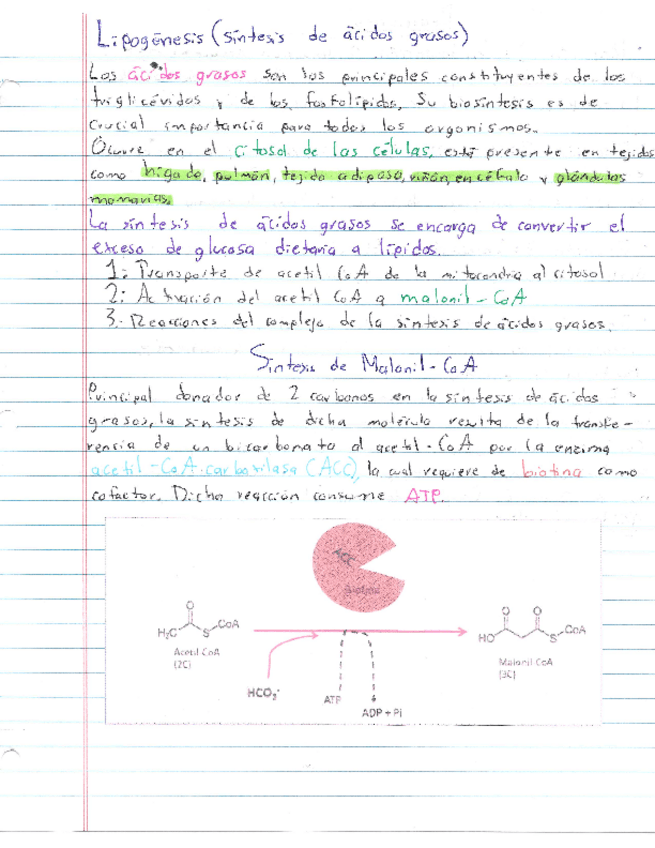 Lipogénesis (síntesis de ácidos grasos)
Los ácidos grasos son los principales constituyentes de los
triglicéridos y de los fosfolípidos, Su biosíntesis es de
crucial importancia para todos los organismos.
Ocurre en el citosol de las células, está presente en tejidos
como hígado, pulmón, tejido adiposo, riñón, encéfalo y glándulas
mamarias.
La síntesis de ácidos grasos se encarga de convertir el
exceso de glucosa dietaria a lípidos.
1: Transporte de acetil CoA de la mitocondria al citosol
2: Activación del acetil CoA a malonil-CoA
3.- Reacciones del complejo de la síntesis de ácidos grasos.
Síntesis de Malonil-CoA
Principal donador de 2 carbonos en la síntesis de ácidos
grasos, la síntesis de dicha molécula resulta de la transfe-
rencia de un bicarbonato al acetil-CoA por la enzima
acetil-CoA-carboxilasa (ACC), la cual requiere de biotina como
cofactor. Dicha reacción consume ATP.
ACC
Biotina
H₃C S CoA
Acetil CoA
(2C)
HCO₃⁻
ATP
ADP + Pi
HO O O S CoA
Malonil CoA
(3C)